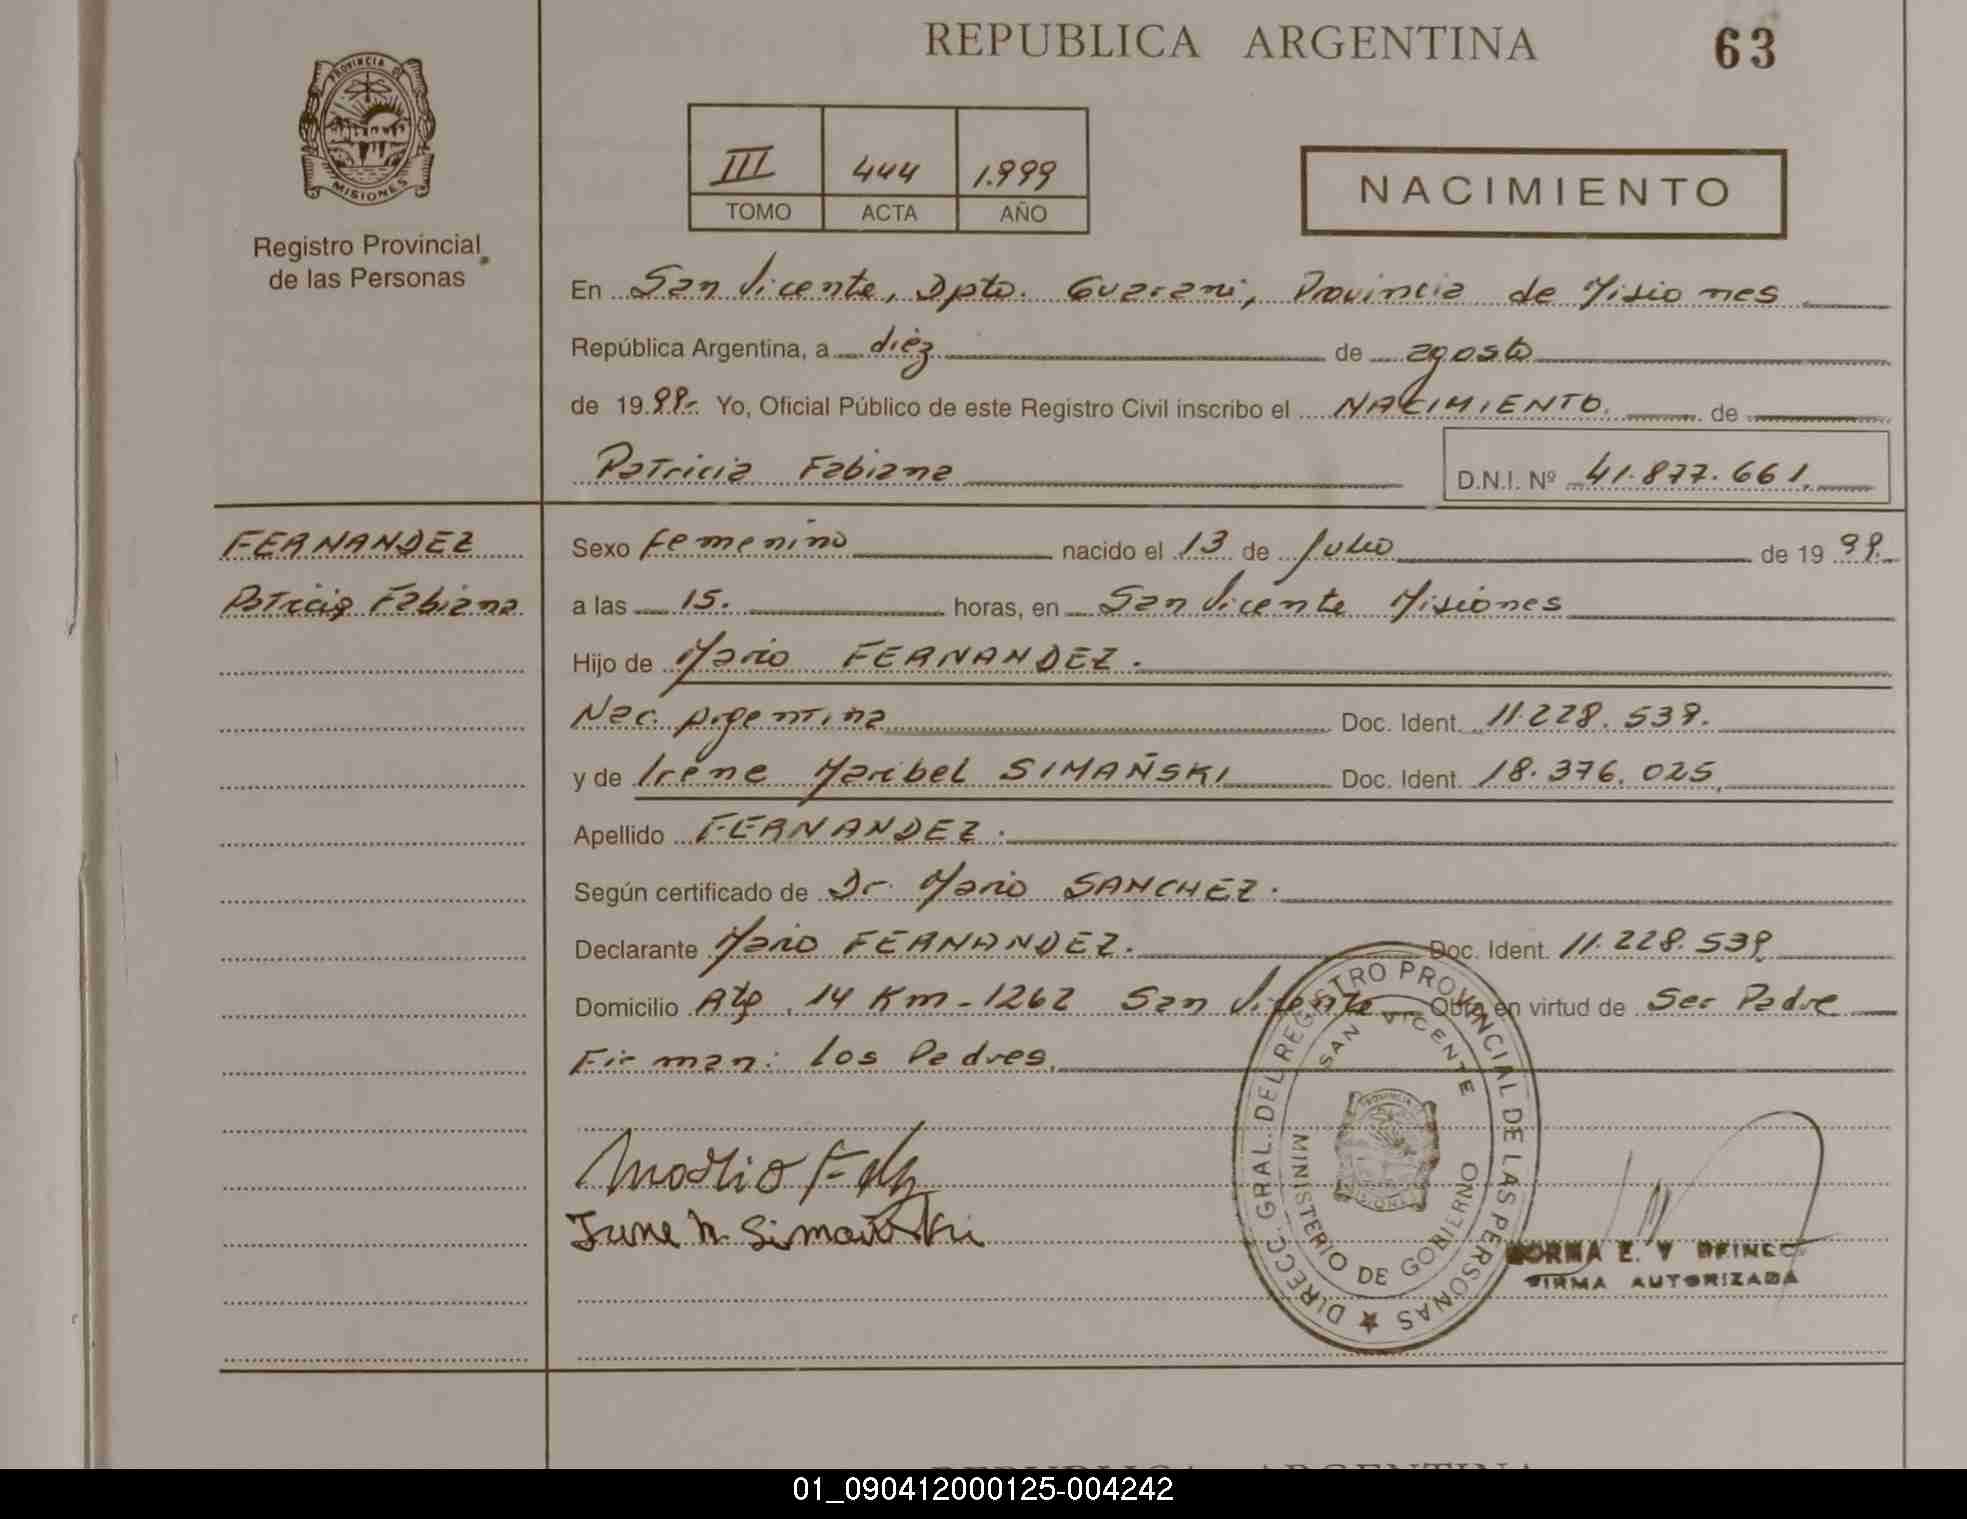 REPUBLICA ARGENTINA
63
PROVINCIA DE
MISIONES
Registro Provincial
de las Personas
III 444 1.999
TOMO ACTA AÑO
NACIMIENTO
En San Vicente, Dpto. Guarani, Provincia de Misiones
República Argentina, a diez de agosto
de 1999.- Yo, Oficial Público de este Registro Civil inscribo el NACIMIENTO. de
Patricia Fabiana D.N.I. Nº 41.877.661.
FERNANDEZ
Patricia Fabiana
Sexo femenino nacido el 13 de Julio de 1999.
a las 15. horas, en San Vicente Misiones
Hijo de Mario FERNANDEZ.
Nac. Argentina Doc. Ident. 11.228.539.
y de Irene Maribel SIMAÑSKI Doc. Ident. 18.376.025.
Apellido FERNANDEZ.
Según certificado de Dr. Mario SANCHEZ.
Declarante Mario FERNANDEZ. Doc. Ident. 11.228.539
Domicilio 14 Km - 1262 San Vicente Obra en virtud de Ser Padre
Firman: los Padres.
DIRECC. GRAL. DEL REGISTRO PROVINCIAL DE LAS PERSONAS
SAN VICENTE
MINISTERIO DE GOBIERNO
PROVINCIA DE
MISIONES
Irene M. Simañski
NORMA E. V
FIRMA AUTORIZADA
REPUBLICA ARGENTINA
01_090412000125-004242